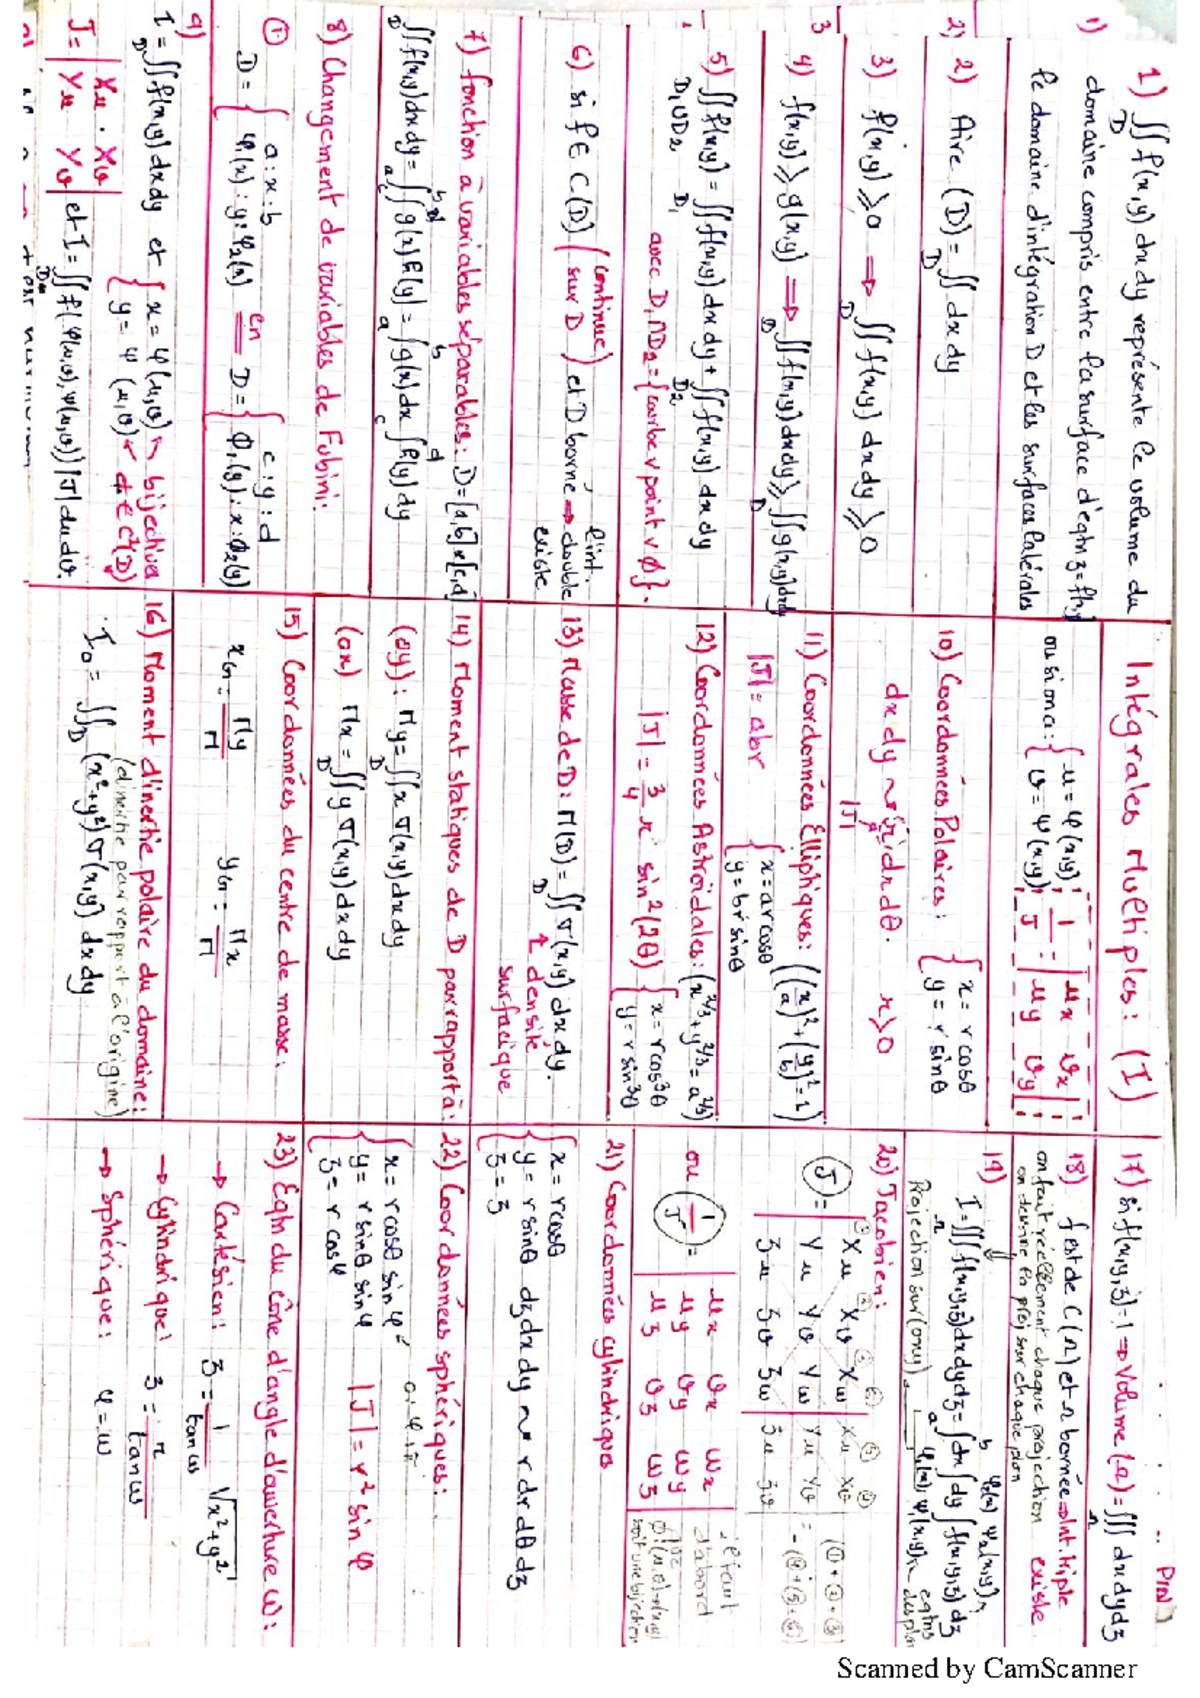 Intégrales Multiples: (I)
1) ∬_D f(x,y) dxdy représente le volume du
domaine compris entre la surface d'eqtn z=f(x,y)
le domaine d'intégration D et les surfaces latérales
2) Aire (D) = ∬_D dxdy
3) f(x,y) ≥ 0 ⟹ ∬_D f(x,y) dxdy ≥ 0
4) f(x,y) ≥ g(x,y) ⟹ ∬_D f(x,y)dxdy ≥ ∬_D g(x,y)dxdy
5) ∬_{D1∪D2} f(x,y) = ∬_{D1} f(x,y) dxdy + ∬_{D2} f(x,y) dxdy
avec D1∩D2 = {courbe ∨ point ∨ ∅}.
6) si f ∈ C(D) (continue sur D) et D borné ⟹ l'int. double existe
7) fonction à variables séparables: D=[a,b]×[c,d]
∬_D f(x,y)dxdy = ∫_a^b ∫_c^d g(x)h(y) = ∫_a^b g(x)dx ∫_c^d h(y)dy
8) Changement de variables de Fubini:
① D = { a:x:b
φ1(x):y:φ2(x) ⟹ en D = { c:y:d
ϕ1(y):x:ϕ2(y)
9)
I = ∬_D f(x,y)dxdy et { x = φ(u,v)
y = ψ(u,v) bijective et ∈ C¹(D)
J = | Xu Xv
Yu Yv | et I = ∬_{Duv} f(φ(u,v),ψ(u,v)) |J| du dv.
ou si on a: { u = φ(x,y)
v = ψ(x,y) ; 1/J = | ux vx
uy vy |
10) Coordonnées Polaires: { x = r cosθ
y = r sinθ
dxdy ~ r dr dθ. r>0
|J|
11) Coordonnées Elliptiques: ((x/a)² + (y/b)² = 1)
|J| = abr { x = ar cosθ
y = br sinθ
12) Coordonnées Astroïdales: (x^{2/3} + y^{2/3} = a^{2/3})
|J| = 3/4 r sin²(2θ) { x = r cos³θ
y = r sin³θ
13) Masse de D: M(D) = ∬_D σ(x,y) dxdy.
↑ densité
surfacique
14) Moment statiques de D par rapport à:
(oy): My = ∬_D x σ(x,y) dxdy
(ox) Mx = ∬_D y σ(x,y) dxdy
15) Coordonnées du centre de masse:
xG = My/M yG = Mx/M
16) Moment d'inertie polaire du domaine:
(d'inertie par rapport à l'origine)
I0 = ∬_D (x²+y²) σ(x,y) dxdy
17) si f(x,y,z)=1 ⟹ Volume(Ω) = ∭_Ω dxdydz
18) f est de C(Ω) et Ω bornée ⟹ Int triple existe.
on fait réellement chaque projection
on dessine la proj sur chaque plan
19)
I = ∭_Ω f(x,y,z)dxdydz = ∫_a^b dx ∫_{φ1(x)}^{φ2(x)} dy ∫_{ψ1(x,y)}^{ψ2(x,y)} f(x,y,z) dz
Projection sur (oxy) eqtns des plan
20) Jacobien:
J = | Xu Xv Xw | Xu Xv
Yu Yv Yw | Yu Yv
Zu Zv Zw | Zu Zv
(①+②+③)
-(④+⑤+⑥)
ou 1/J = | ux vx wx
uy vy wy
uz vz wz |
d'abord
soit une bijection
21) Coordonnées cylindriques
{ x = r cosθ
y = r sinθ
z = z
dzdxdy ~ r dr dθ dz
22) Coordonnées sphériques:
{ x = r cosθ sin φ
y = r sinθ sin φ
z = r cosφ
|J| = r² sin φ
23) Eqtn du Cône d'angle d'ouverture ω:
→ Cartésien: z = 1/tan ω √(x²+y²)
→ Cylindrique: z = r/tan ω
→ Sphérique: φ = ω
Scanned by CamScanner